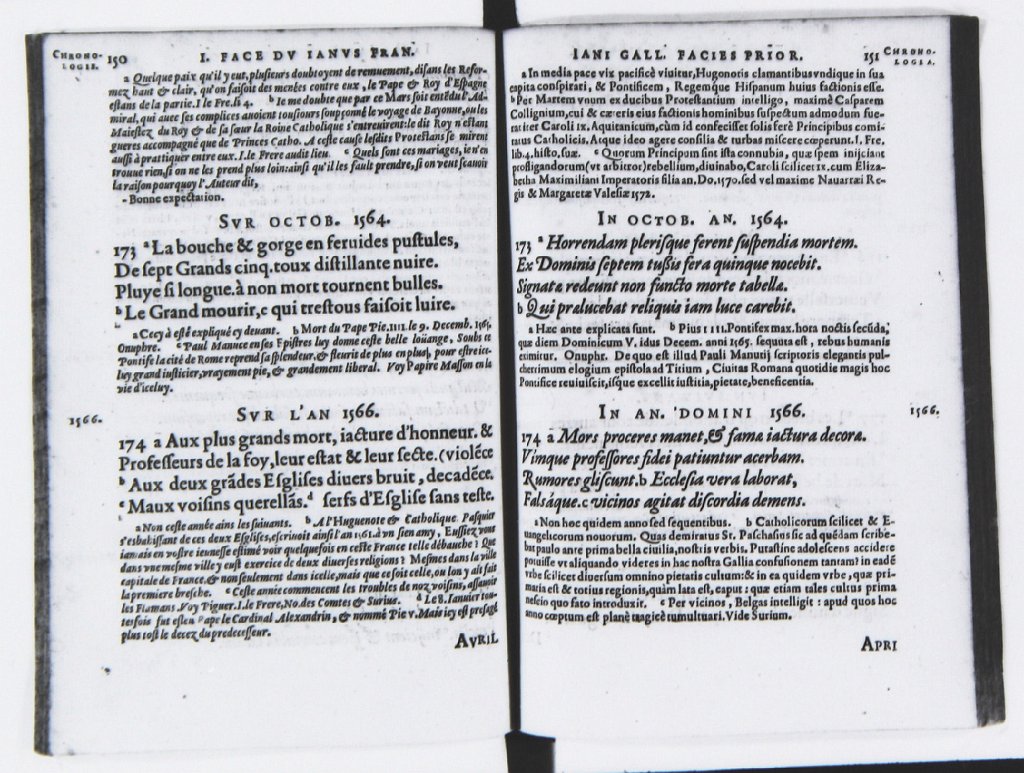 CHRONO-
LOGIE.
150
I. FACE DV IANVS FRAN.
a Quelque paix qu'il y eut, plusieurs doubtoyent de remuement, disans les Refor-
mez haut & clair, qu'on faisoit des menées contre eux, le Pape & Roy d'Espagne
estans de la partie. I le Fre. li 4. b Ie me doubte que par ce Mars soit entẽdu l'Ad-
miral, qui auec ses complices auoient tousiours soupçonné le voyage de Bayonne, ou les
Maiestez du Roy & de sa sœur la Roine Catholique s'entreuirent: le dit Roy n'estant
gueres accompagné que de Princes Catho. A ceste cause lesdits Protestans se mirent
aussi à prattiquer entre eux. I. le Frere audit lieu. c Quels sont ces mariages, ie n'en
trouue rien, si on ne les prend plus loin: ainsi qu'il les fault prendre, si on veut scauoir
la raison pourquoy l'Auteur dit,
- Bonne expectation.
SVR OCTOB. 1564.
173 a La bouche & gorge en feruides pustules,
De sept Grands cinq. toux distillante nuire.
Pluye si longue. à non mort tournent bulles.
b Le Grand mourir, c qui trestous faisoit luire.
a Cecy à esté expliqué cy deuant. b Mort du Pape Pie. IIII. le 9. Decemb. 1565.
Onuphre. c Paul Manuce en ses Epistres luy donne ceste belle loüange, Soubs ce
Pontife la cité de Rome reprend sa splendeur, & fleurit de plus en plus, pour estre ice-
luy grand iusticier, vrayement pie, & grandement liberal. Voy Papire Masson en la
vie d'iceluy.
1566.
SVR L'AN 1566.
174 a Aux plus grands mort, iacture d'honneur. &
Professeurs de la foy, leur estat & leur secte. (violẽce
b Aux deux grãdes Esglises diuers bruit, decadẽce.
c Maux voisins querellãs. d serfs d'Esglise sans teste.
a Non ceste année ains les suiuants. b A l'Huguenote & Catholique. Pasquier
s'esbahissant de ces deux Esglises, escriuoit ainsi l'an 1561. à vn sien amy, Eussiez vous
iamais en vostre ieunesse estimé voir quelquefois en ceste France telle débauche? Que
dans vne mesme ville y eust exercice de deux diuerses religions? Mesmes dans la ville
capitale de France, & non seulement dans icelle, mais que ce soit celle, ou lon y ait fait
la premiere bresche. c Ceste année commencent les troubles de noz voisins, assauoir
les Flamans. Voy Piguer. I. le Frere, No. des Comtes & Surius. d Le 8. Ianuier tou-
tesfois fut esleu Pape le Cardinal Alexandrin, & nommé Pie v. Mais icy est presagé
plus tost le decez du predecesseur.
AVRIL
IANI GALL. FACIES PRIOR.
151
CHRONO-
LOGIA.
a In media pace vix pacificè viuitur, Hugonotis clamantibus vndique in sua
capita conspirari, & Pontificem, Regemque Hispanum huius factionis esse.
b Per Martem vnum ex ducibus Protestantium intelligo, maximè Casparem
Collignium, cui & cæteris eius factionis hominibus suspectum admodum fue-
rat iter Caroli ix. Aquitanicum, cùm id confecisset solis ferè Principibus comi-
tatus Catholicis. Atque ideo agere consilia & turbas miscere cœperunt. I. Fre.
lib. 4. histo. suæ. c Quorum Principum sint ista connubia, quæ spem iniiciant
profligandorum (vt arbitror) rebellium, diuinabo, Caroli scilicet ix. cum Eliza-
betha Maximiliani Imperatoris filia an. Do. 1570. sed vel maxime Nauarræ Re-
gis & Margaretæ Valesiæ 1572.
IN OCTOB. AN. 1564.
173 a Horrendam plerisque ferent suspendia mortem.
Ex Dominis septem tussis fera quinque nocebit.
Signatæ redeunt non functo morte tabellæ.
b Qui prælucebat reliquis iam luce carebit.
a Hæc ante explicata sunt. b Pius IIII. Pontifex max. hora noctis secũda,
quæ diem Dominicum V. idus Decem. anni 1565. sequuta est, rebus humanis
eximitur. Onuphr. De quo est illud Pauli Manutij scriptoris elegantis pul-
cherrimum elogium epistola ad Titium, Ciuitas Romana quotidie magis hoc
Pontifice reuiuiscit, isque excellit iustitia, pietate, beneficentia.
IN AN. DOMINI 1566.
1566.
174 a Mors proceres manet, & fama iactura decora.
Vimque professores fidei patiuntur acerbam.
Rumores gliscunt. b Ecclesia vera laborat,
Falsáque. c vicinos agitat discordia demens.
a Non hoc quidem anno sed sequentibus. b Catholicorum scilicet & E-
uangelicorum nouorum. Quas demiratus St. Paschasius sic ad quẽdam scribe-
bat paulo ante prima bella ciuilia, nostris verbis. Putasne adolescens accidere
potuisse vt aliquando videres in hac nostra Gallia confusionem tantam? in eadẽ
vrbe scilicet diuersum omnino pietatis cultum: & in ea quidem vrbe, quæ pri-
maria est & totius regionis, quàm lata est, caput: quæ etiam tales cultus prima
nescio quo fato introduxit. c Per vicinos, Belgas intelligit: apud quos hoc
anno cœptum est planè tragicè tumultuari. Vide Surium.
APRI